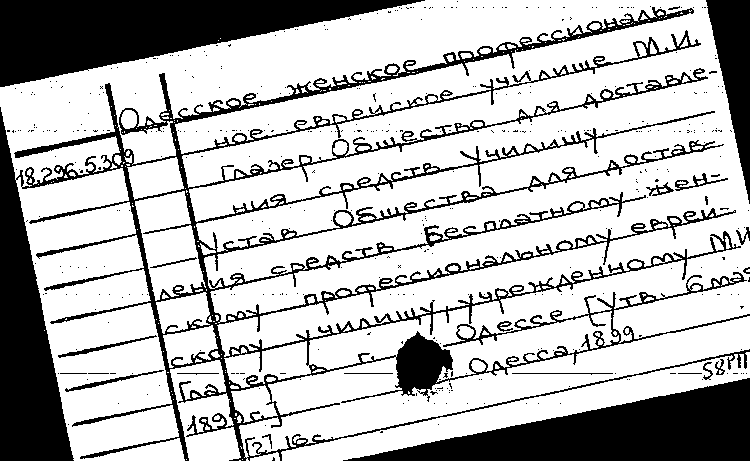 Одесское женское профессиональ-
ное еврейское училище М.И.
18.296.5.309
Глазер. Общество для доставле-
ния средств училищу.
Устав Общества для достав-
ления средств Бесплатному жен-
скому профессиональному еврей-
скому училищу, учрежденному М.И.
Глазер в г. Одессе [Утв. 6 мая
1899 г.] Одесса, 1899.
[2], 16 с.